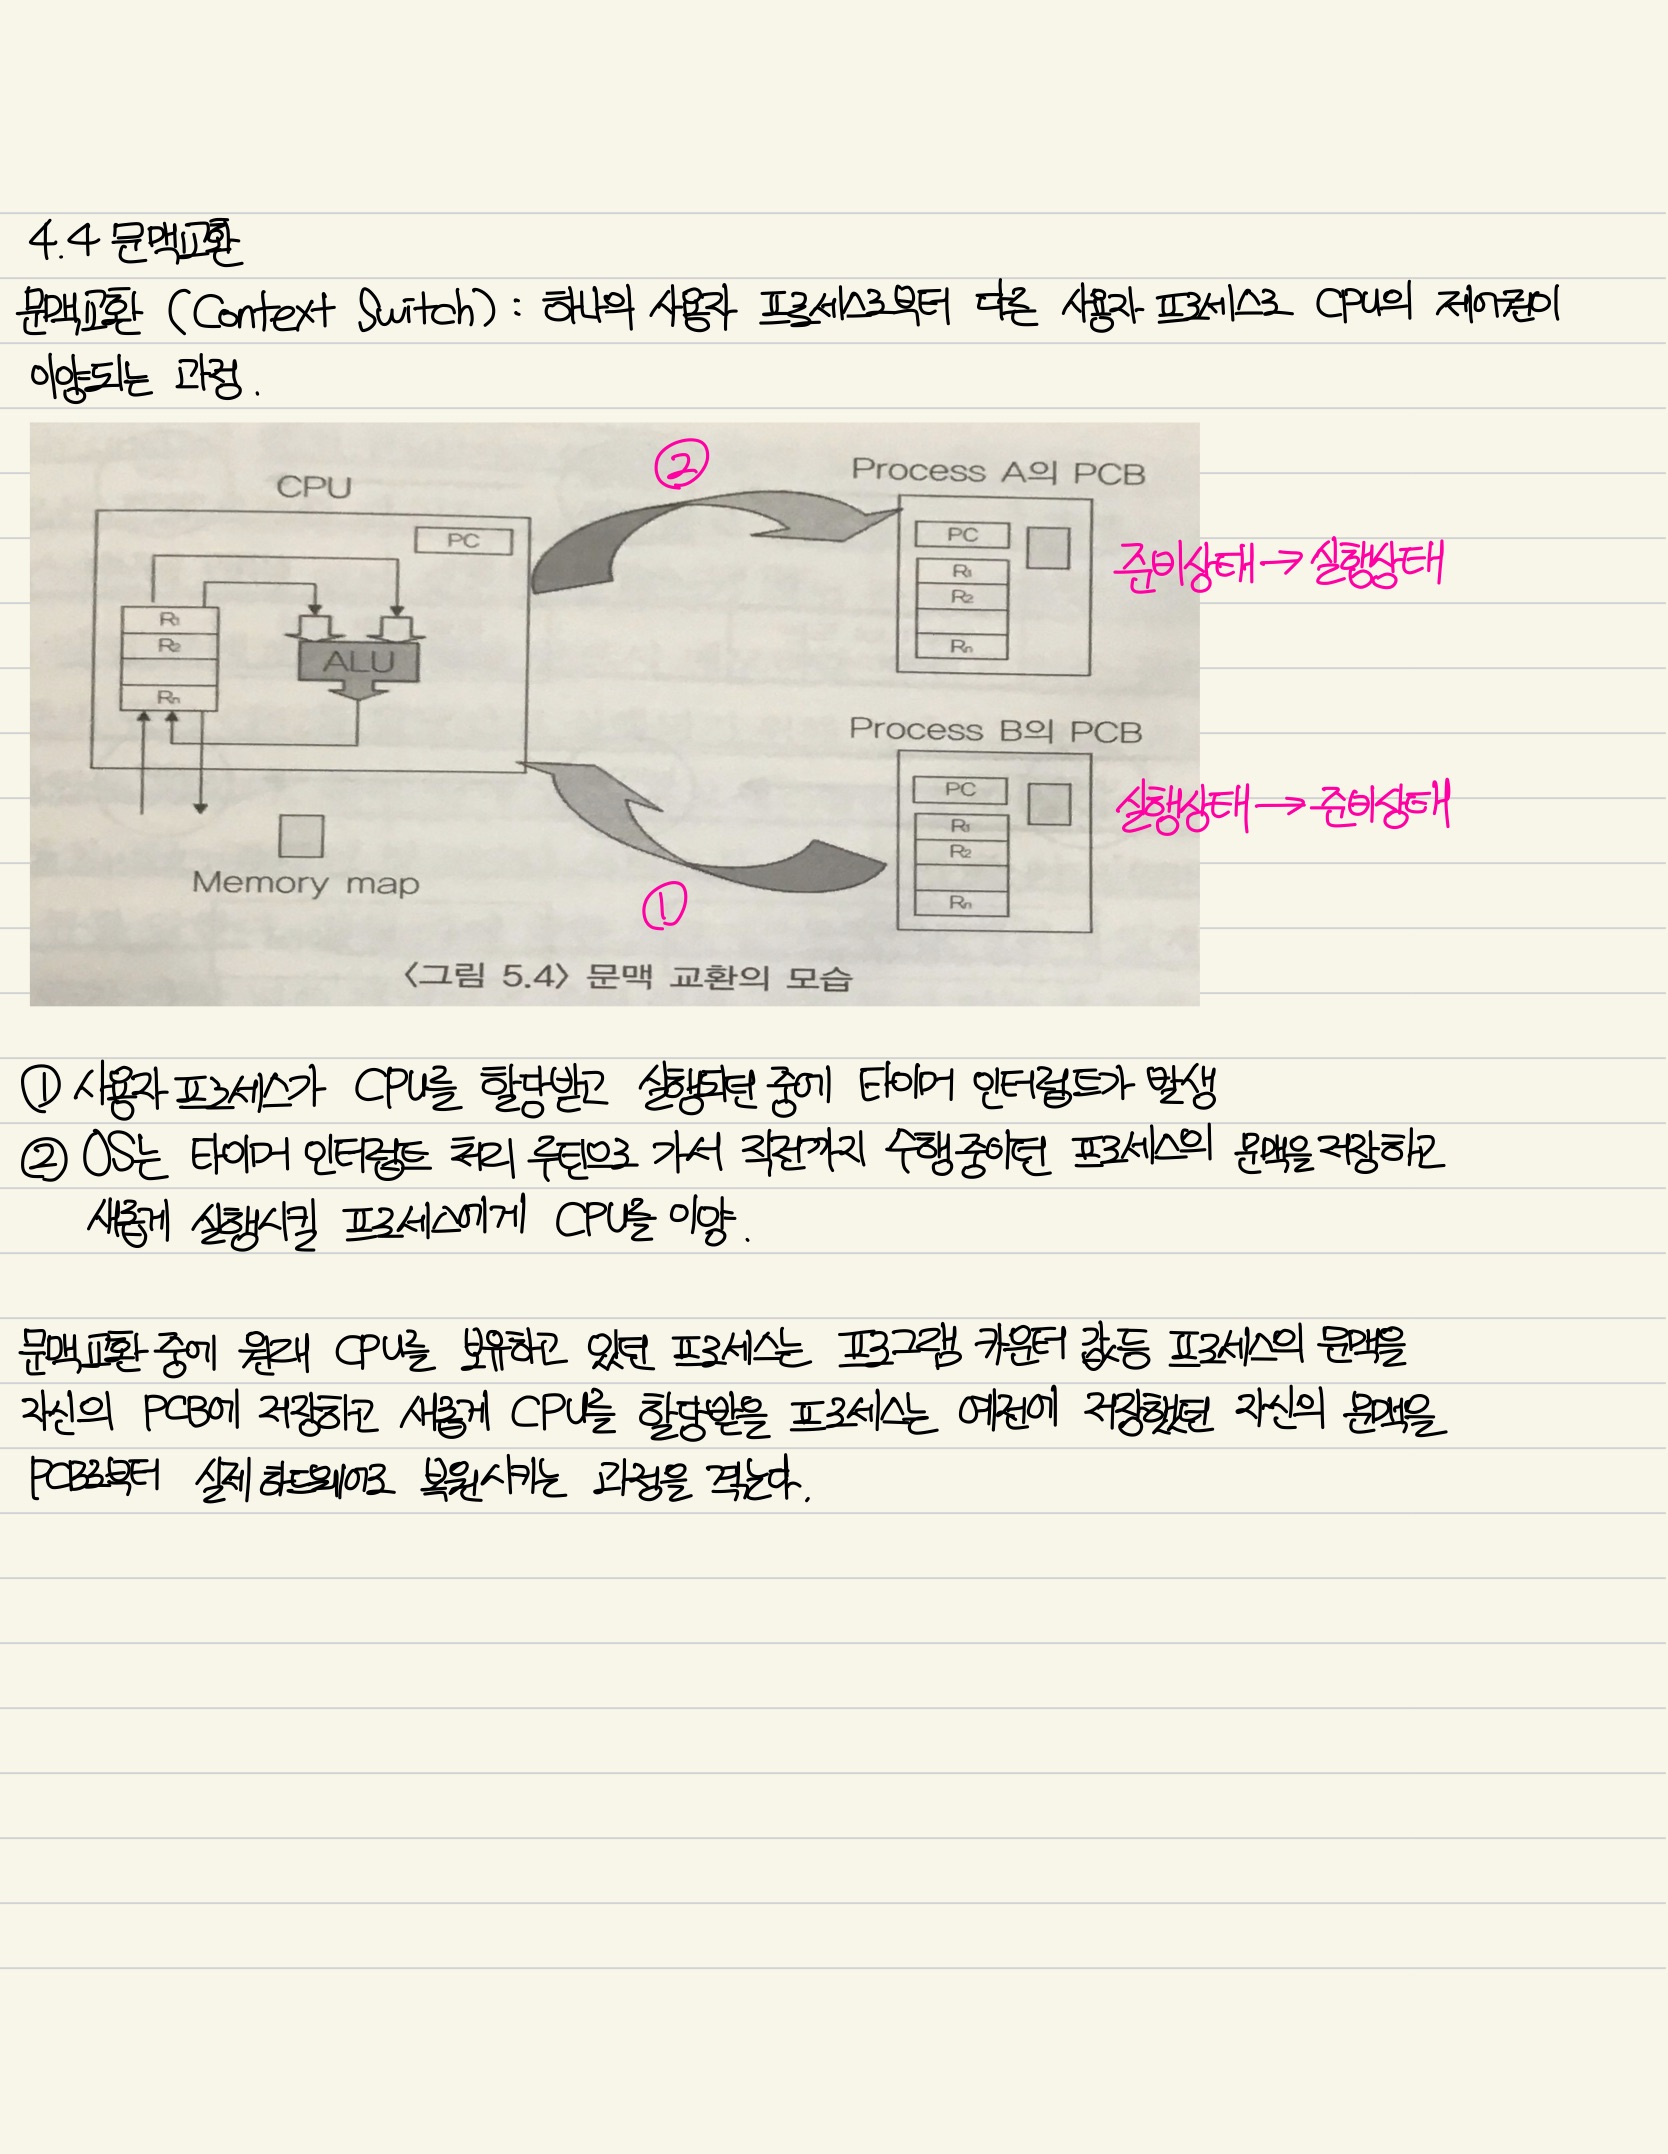 4.4 문맥교환
문맥교환 (Context Switch) : 하나의 사용자 프로세스로부터 다른 사용자 프로세스로 CPU의 제어권이
이양되는 과정.
②
Process A의 PCB
CPU
PC
PC
준비상태 → 실행상태
R1
R2
Rn
R1
R2
Rn
ALU
Process B의 PCB
PC
실행상태 → 준비상태
R1
R2
Rn
Memory map
①
〈그림 5.4〉 문맥 교환의 모습
① 사용자 프로세스가 CPU를 할당받고 실행되던 중에 타이머 인터럽트가 발생
② OS는 타이머 인터럽트 처리 루틴으로 가서 직전까지 수행중이던 프로세스의 문맥을 저장하고
새롭게 실행시킬 프로세스에게 CPU를 이양.
문맥교환 중에 원래 CPU를 보유하고 있던 프로세스는 프로그램 카운터 값 등 프로세스의 문맥을
자신의 PCB에 저장하고 새롭게 CPU를 할당받을 프로세스는 예전에 저장했던 자신의 문맥을
PCB로부터 실제 하드웨어로 복원시키는 과정을 겪는다.